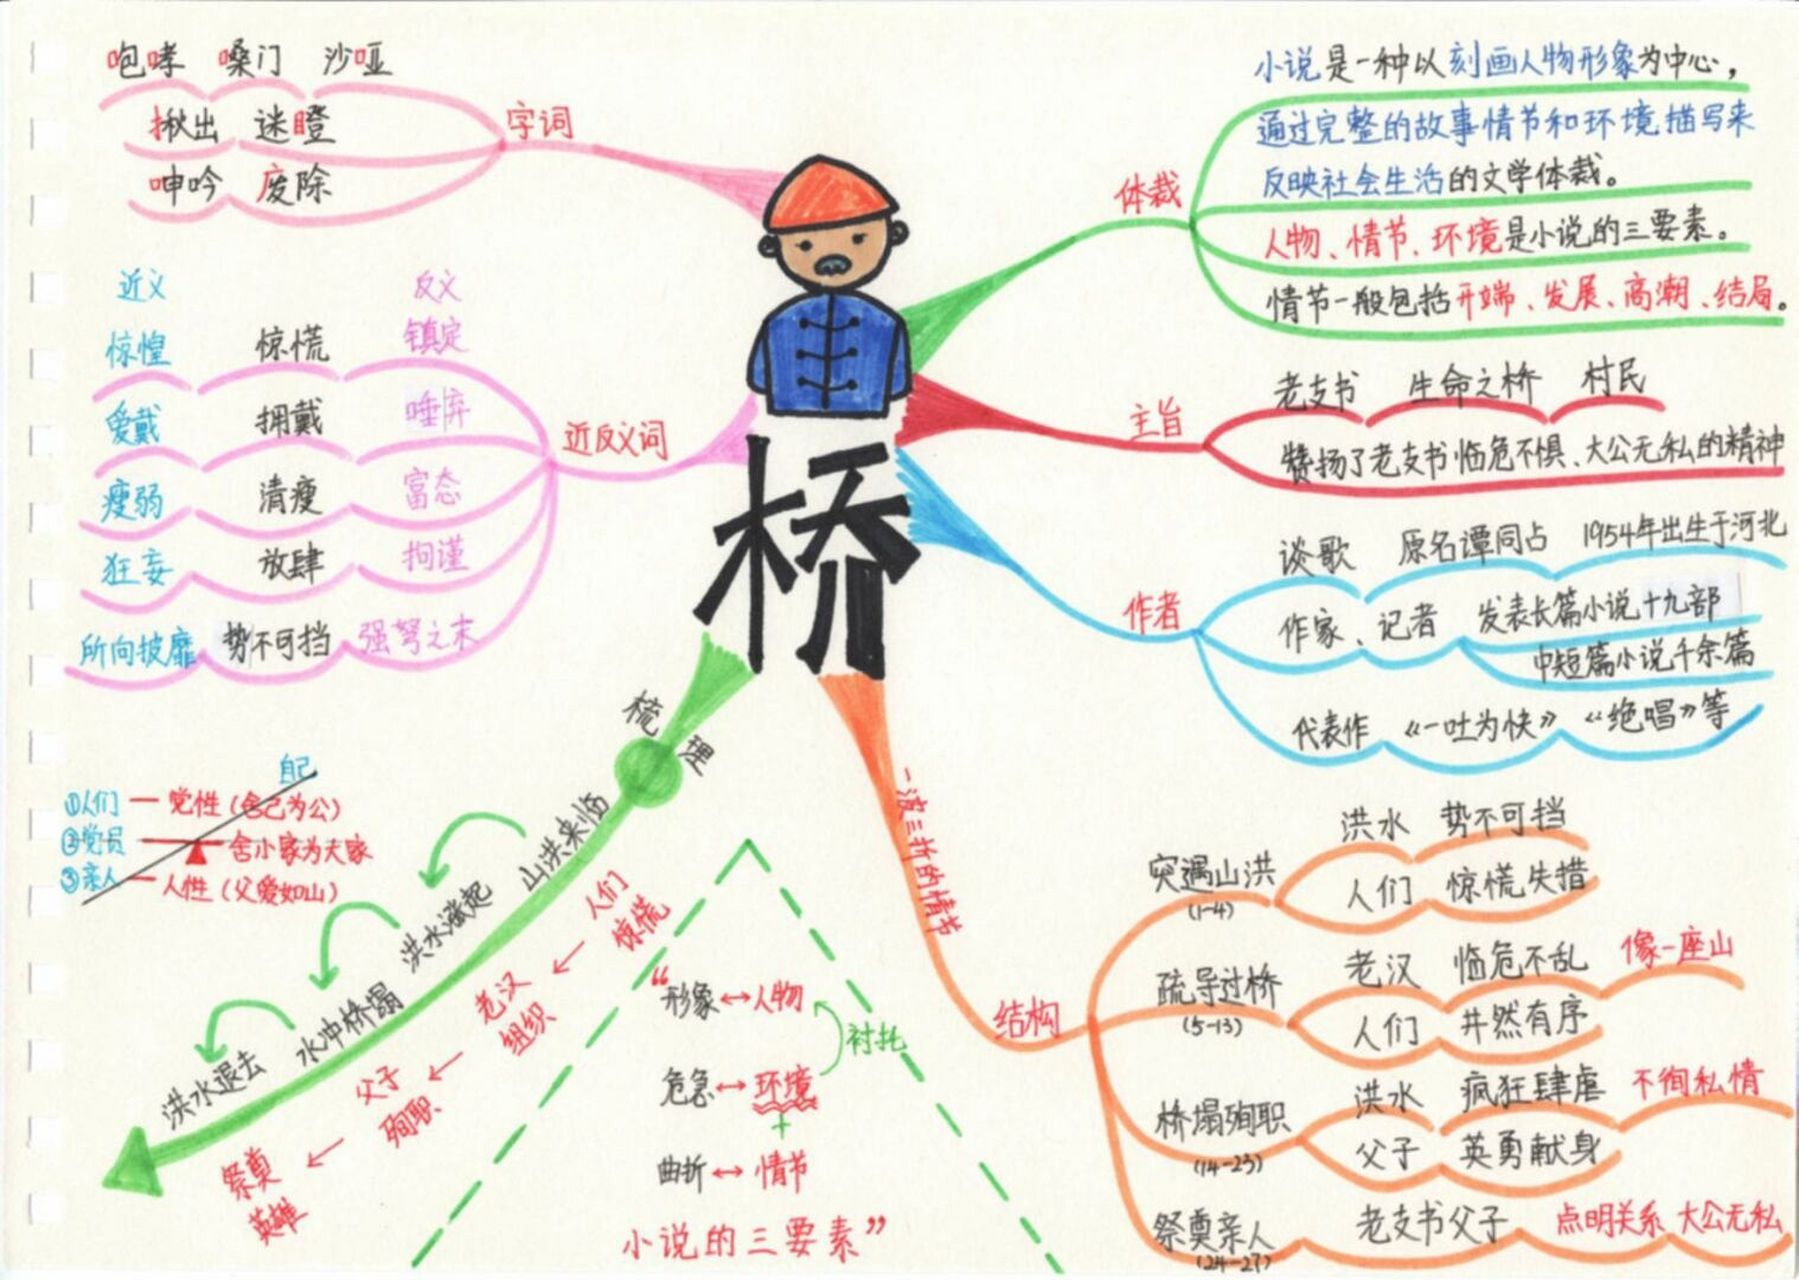 咆哮 嗓门 沙哑
揪出 迷瞪
呻吟 废除
字词
近义 反义
惊惶 惊慌 镇定
爱戴 拥戴 唾弃
瘦弱 清瘦 富态
狂妄 放肆 拘谨
所向披靡 势不可挡 强弩之末
近反义词
桥
体裁
小说是一种以刻画人物形象为中心，
通过完整的故事情节和环境描写来
反映社会生活的文学体裁。
人物、情节、环境是小说的三要素。
情节一般包括开端、发展、高潮、结局。
主旨
老支书 生命之桥 村民
赞扬了老支书临危不惧、大公无私的精神
作者
谈歌 原名谭同占 1954年出生于河北
作家、记者 发表长篇小说十九部
中短篇小说千余篇
代表作 《一吐为快》 《绝唱》等
一波三折的情节
结构
突遇山洪
(1-4)
洪水 势不可挡
人们 惊慌失措
疏导过桥
(5-13)
老汉 临危不乱 像一座山
人们 井然有序
桥塌殉职
(14-23)
洪水 疯狂肆虐 不徇私情
父子 英勇献身
祭奠亲人
(24-27)
老支书父子 点明关系 大公无私
梳理
山洪来临
洪水涨起
水冲桥塌
洪水退去
人们
惊慌
老汉
组织
父子
殉职
祭奠
英雄
自己
①人们 — 党性（舍己为公）
②党员 — 舍小家为大家
③亲人 — 人性（父爱如山）
“形象↔人物
衬托
危急↔环境
+
曲折↔情节
小说的三要素”